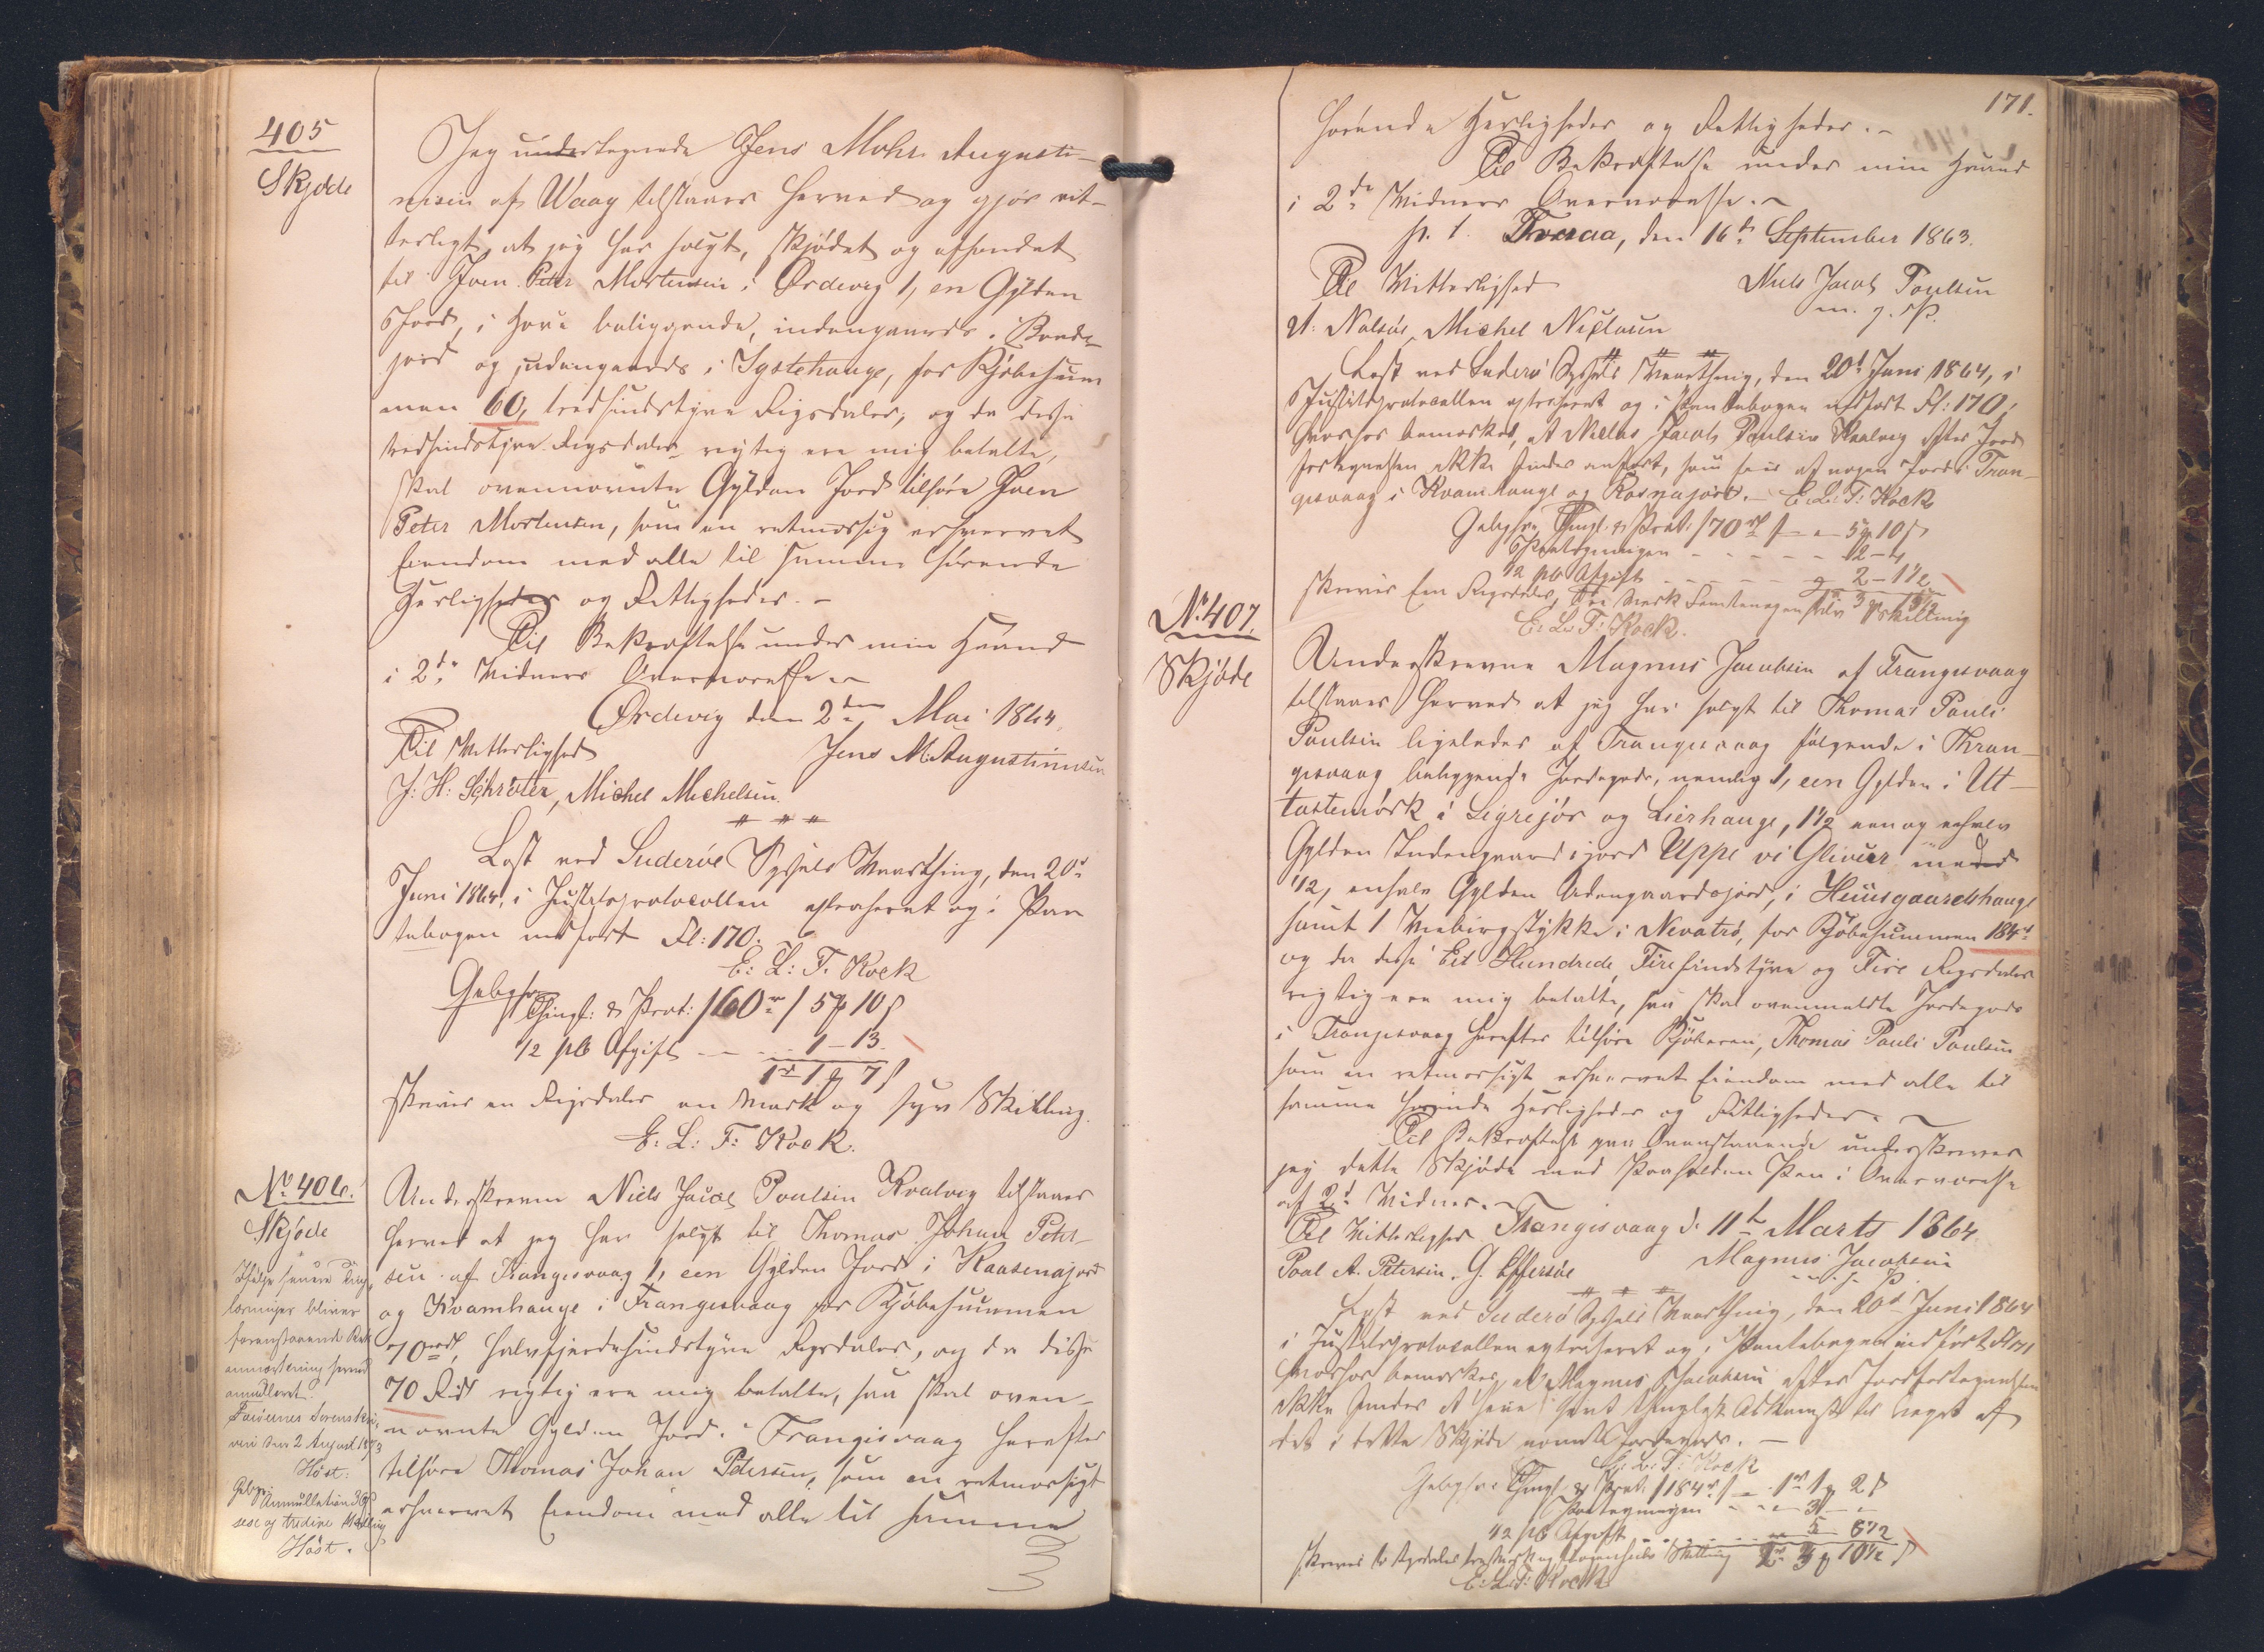 405
Skjøde
Jeg undertegnede Jens Mohr Augusti-
nisen af Waag tilstaaer herved og gjør vit-
terligt, at jeg har solgt, skjødet og afhændet
til Joen Peter Mortensen i Ørdevig 1, en Gylden
Jord, i Hove beliggende, indengaards i Bonde-
jord og udengaards i Systehauge, for Kjøbesum
men 60, tredsindstyve Rigsdaler, og da disse
tredsindstyve Rigsdaler rigtig ere mig betalte,
skal ovennævnte Gylden Jord tilhøre Joen
Peter Mortensen, som en retmæssig erhvervet
Eiendom med alle til samme hørende
Herligheder og Rettigheder. -
Til Bekræftelse under min Haand
i 2de Vidners Overværelse. -
Ørdevig den 2den Mai 1864.
Til Vitterlighed
Jens M. Augustinussen
J: H: Schrøter, Michel Michelsen.
Læst ved Suderøe Syssels Vaarthing, den 20d
Juni 1864, i Justitsprotocollen extraheret og i Pan
tebogen indført Fl: 170.
E: L: T: Kock
Gebyhr
Thingl: & Prot: /60 rd/ 5 # 10 s
1/2 pCt Afgift - - - 1 - 13.
1 rd 1 # 7 s
skriver en Rigsdaler en Mark og syv Skilling.
E: L: T: Kock.
No 406.
Skjøde
Ifølge senere Ting-
læsninger bliver
foranstaaende Ret
anmærkning herved
annulleret.
Færøernes Sorenskri-
veri den 2 August 1873
Høst:
Gebyr:
Annullation 36 s
sex og tredive Skilling
Høst.
Underskrevne Niels Jacob Poulsen Kvalvig tilstaaer
herved at jeg har solgt til Thomas Johan Peter-
sen af Trangisvaag 1, een Gylden Jord i Kaasenajord
og Kvamhauge i Trangisvaag for Kjøbesummen
70 rd, halvfjerdsindstyve Rigsdaler, og da disse
70 Rd rigtig ere mig betalte, saa skal oven-
nævnte Gylden Jord i Trangisvaag herefter
tilhøre Thomas Johan Petersen, som en retmæssigt
erhvervet Eiendom med alle til samme
171.
hørende Herligheder og Rettigheder. -
Til Bekræftelse under min Haand
i 2de Vidners Overværelse. -
p. t. Tveraa, den 16de September 1863.
Til Vitterlighed
Niels Jacob Poulsen
m. f. P.
A: Nolsøe, Michel Niclasen
Læst ved Suderø Syssels Vaarthing, den 20d Juni 1864, i
Justitsprotocollen extraheret og i Pantebogen indført Fl: 170,
hvorhos bemærkes, at Niels Jacob Poulsen Kvalvig efter Jord
fortegnelsen ikke findes anført, som Eier af nogen Jord i Tran-
gisvaag i Kvamhauge og Kosnajord. - E: L: T: Kock
Gebyhr, Thingl. & Prot: /70 rd/ - - 5 # 10 s
Paategningen - - - - - 12 - 4
1/2 pCt Afgift - - - - 2 - 1 1/2
skriver Een Rigsdaler, Tre Mark Femtenogenhalv Skilling
E: L: T: Kock.
No 407.
Skjøde
Underskrevne Magnus Jacobsen af Trangisvaag
tilstaaer herved at jeg har solgt til Thomas Pauli
Poulsen ligeledes af Trangisvaag følgende i Thran-
gisvaag beliggende Jordegods, nemlig 1, een Gylden i Ut-
tastemørk i Sigrejør og Lierhauge, 1 1/2 een og enhalv
Gylden Indengaardsjord Uppe vi Glivur med
1/2, enhalv Gylden Udengaardsjord, i Huusgaardshauge
samt 1 Traebirgstykke i Nevatrø, for Kjøbesummen 184 rd
og da disse Eet Hundrede, Firesindstyve og Fire Rigsdaler
rigtig ere mig betalte, saa skal ovenmeldte Jordegods
i Trangisvaag herefter tilhøre Kjøberen, Thomas Pauli Poulsen
som en retmæssigt erhvervet Eiendom med alle til
samme hørende Herligheder og Rettigheder. -
Til Bekræftelse paa Ovenstaaende underskriver
jeg dette Skjøde med paaholden Pen i Overværelse
af 2de Vidner. -
Til Vitterlighed
Trangisvaag d. 11te Marts 1864
Poul A. Petersen. G. Effersøe
Magnus Jacobsen
m. f. P.
Læst ved Suderø Syssels Vaarthing, den 20d Juni 1864
i Justitsprotocollen extraheret og i Pantebogen indført Fl: 171
hvorhos bemærkes, at Magnus Jacobsen efter Jordfortegnelsen
ikke findes at have havt thinglæst Adkomst til noget af
det i dette Skjøde nævnte Jordegods. -
E: L: T: Kock
Gebyhr: Thingl. & Prot. /184 rd/ - 1 rd 1 # 2 s
Paategningen - - - 3 - -
1/2 pCt Afgift - - - - 5 - 8 1/2
skriver to Rigsdaler tre Mark og tiogenhalv Skilling 2 rd 3 # 10 1/2 s
E: L: T: Kock